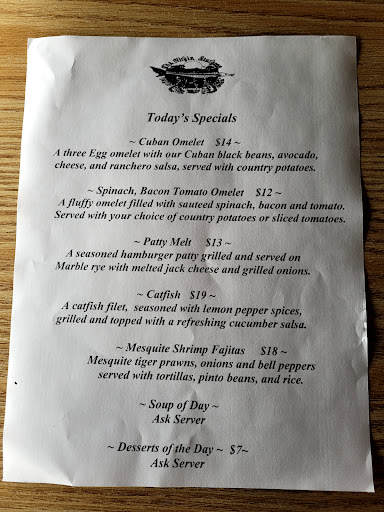 Today's Specials
~ Cuban Omelet $14 ~
A three Egg omelet with our Cuban black beans, avocado,
cheese, and ranchero salsa, served with country potatoes.
~ Spinach, Bacon Tomato Omelet $12 ~
A fluffy omelet filled with sauteed spinach, bacon and tomato.
Served with your choice of country potatoes or sliced tomatoes.
~ Patty Melt $13 ~
A seasoned hamburger patty grilled and served on
Marble rye with melted jack cheese and grilled onions.
~ Catfish $19 ~
A catfish filet, seasoned with lemon pepper spices,
grilled and topped with a refreshing cucumber salsa.
~ Mesquite Shrimp Fajitas $18 ~
Mesquite tiger prawns, onions and bell peppers
served with tortillas, pinto beans, and rice.
~ Soup of Day ~
Ask Server
~ Desserts of the Day ~ $7~
Ask Server